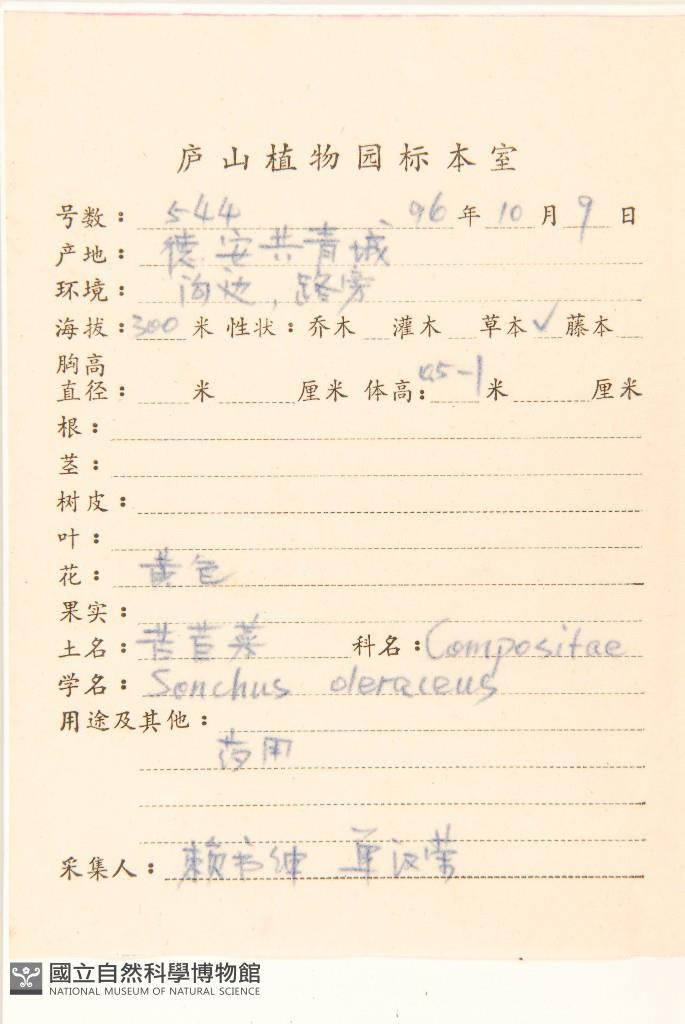 庐山植物园标本室
号数：544 96年10月9日
产地：德安共青城
环境：沟边，路旁
海拔：300米 性状：乔木 灌木 草本✓藤本
胸高
直径： 米 厘米 体高：0.5-1米 厘米
根：
茎：
树皮：
叶：
花：黄色
果实：
土名：苦苣菜 科名：Compositae
学名：Sonchus oleraceus
用途及其他：
药用
采集人：赖书绅 单汉荣
國立自然科學博物館
NATIONAL MUSEUM OF NATURAL SCIENCE